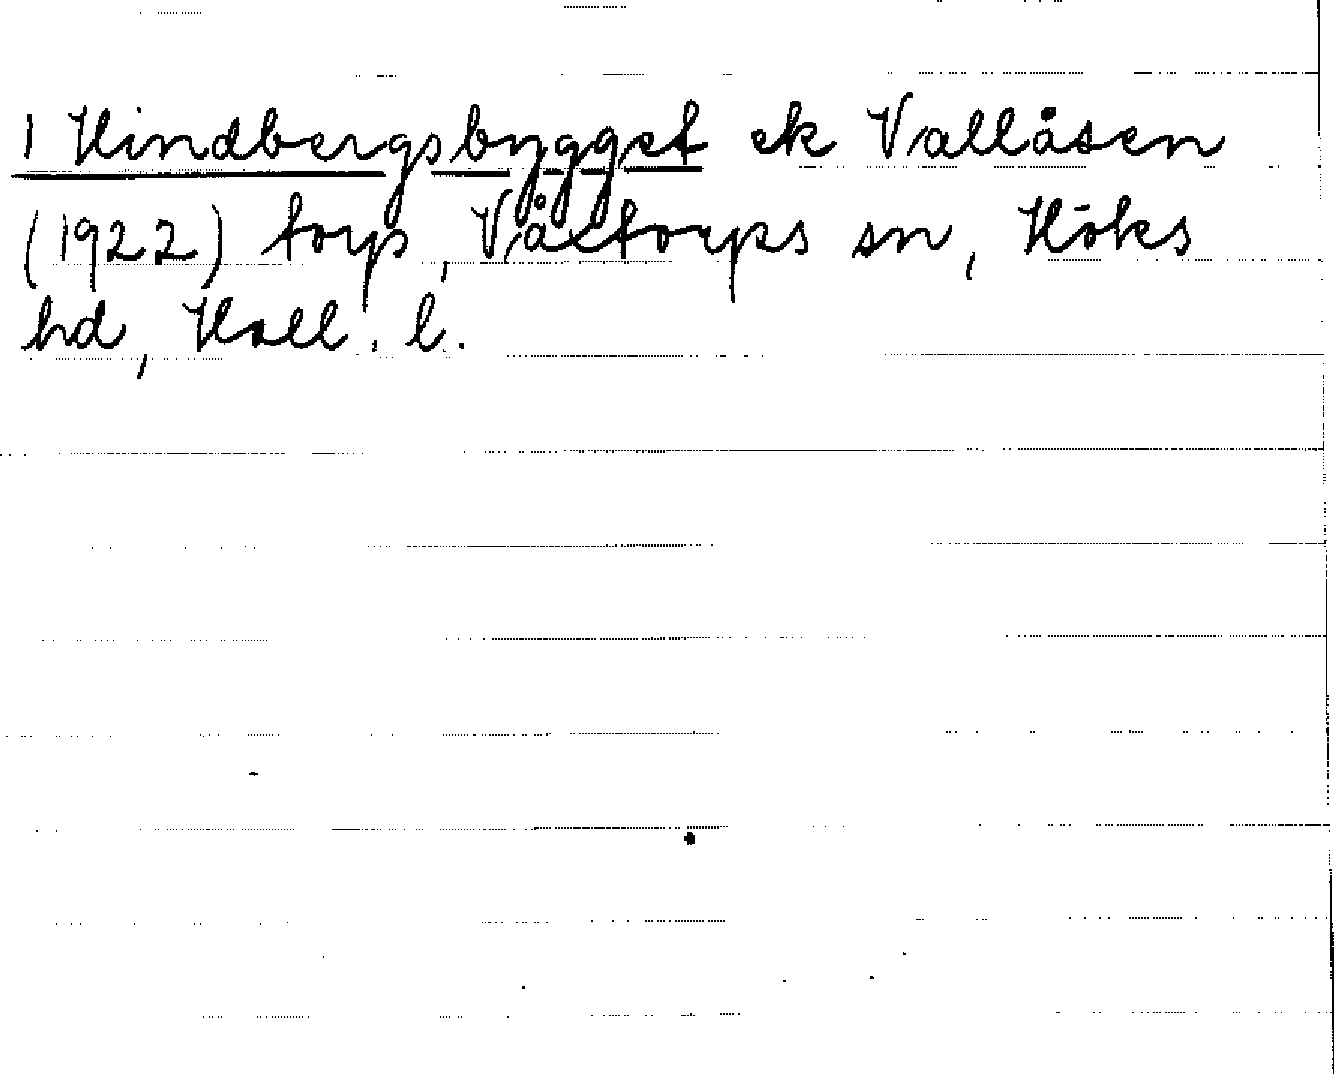 1 Hindbergsbygget ek Vallåsen
(1922) torp, Våxtorps sn, Höks
hd, Hall. l.